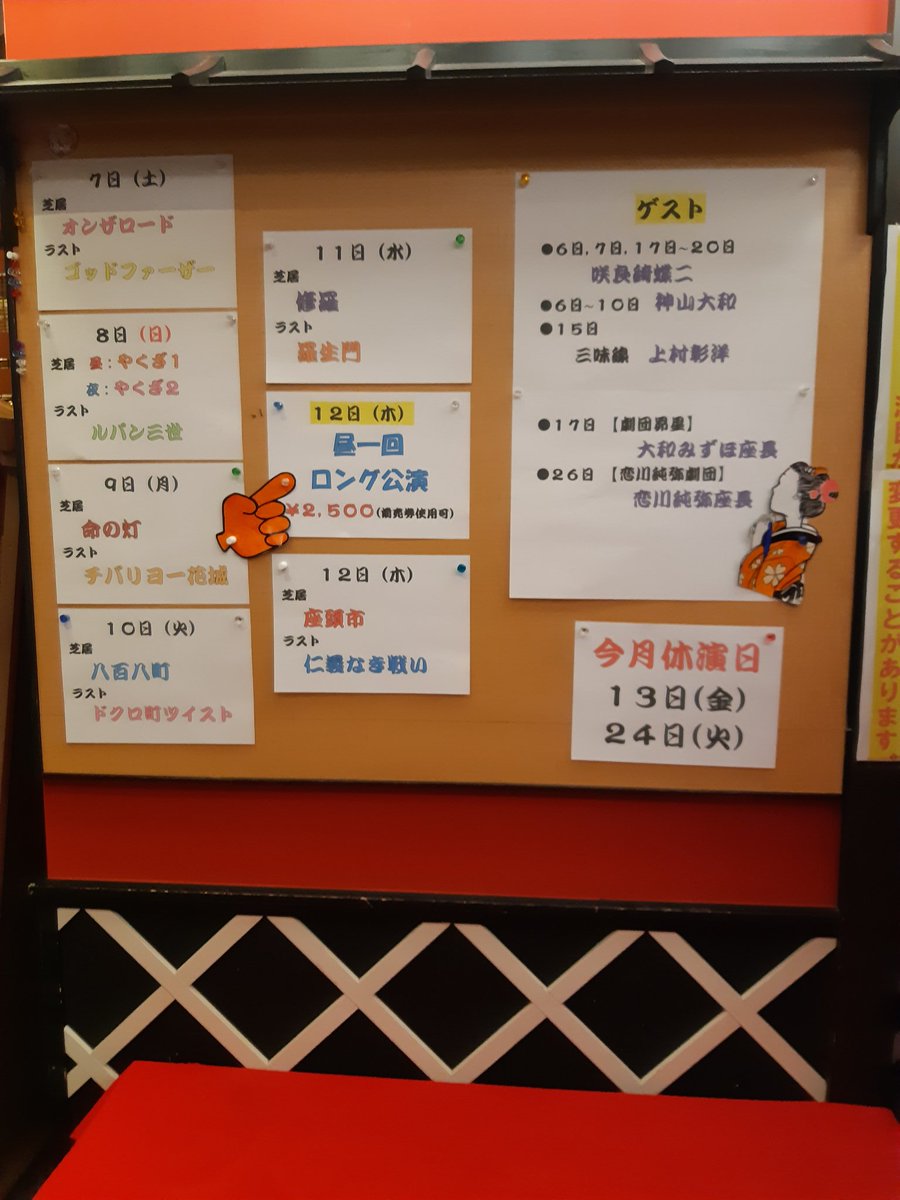 7日（土）
芝居
オンザロード
ラスト
ゴッドファーザー
8日（日）
芝居 昼：やくざ1
夜：やくざ2
ラスト
ルパン三世
9日（月）
芝居
命の灯
ラスト
チバリヨー花城
10日（火）
芝居
八百八町
ラスト
ドクロ町ツイスト
11日（水）
芝居
修羅
ラスト
羅生門
12日（木）
昼一回
ロング公演
￥2,500(前売券使用可)
12日（木）
芝居
座頭市
ラスト
仁義なき戦い
ゲスト
●6日,7日,17日~20日
咲良綺蝶二
●6日~10日 神山大和
●15日
三味線 上村彰洋
●17日 【劇団昴星】
大和みずほ座長
●26日 【恋川純弥劇団】
恋川純弥座長
今月休演日
13日(金)
24日(火)
変更することがあります。